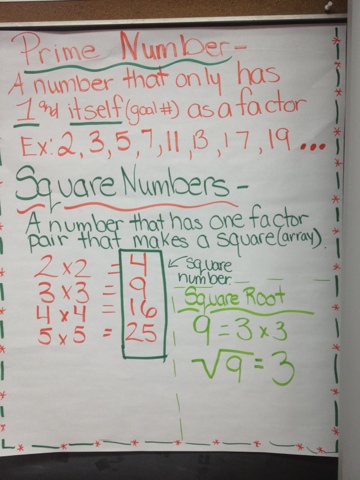 Prime Number-
A number that only has
1 and itself (goal #) as a factor
Ex: 2, 3, 5, 7, 11, 13, 17, 19 ...
Square Numbers-
A number that has one factor
pair that makes a square (array).
2 x 2 = 4
3 x 3 = 9
4 x 4 = 16
5 x 5 = 25
square
number
Square Root
9 = 3 x 3
√9 = 3